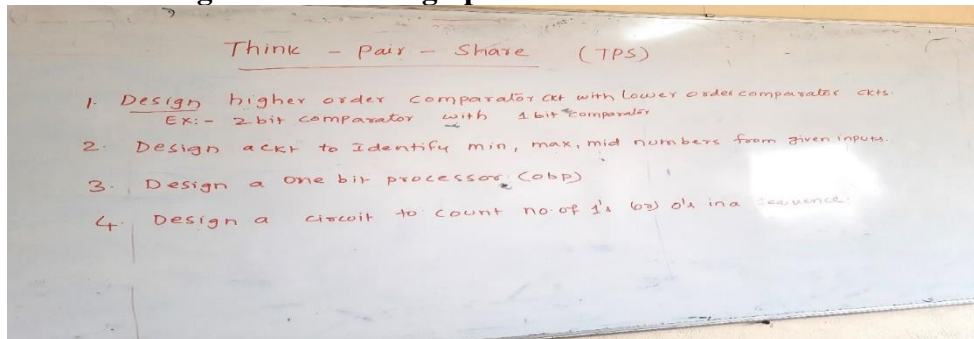 Think - Pair - Share (TPS)
1. Design higher order comparator ckt with Lower order comparator ckts.
Ex:- 2 bit comparator with 1 bit comparator
2. Design a ckt to Identify min, max, mid numbers from given inputs.
3. Design a one bit processor (obp)
4. Design a circuit to count no. of 1's (or) 0's in a sequence.